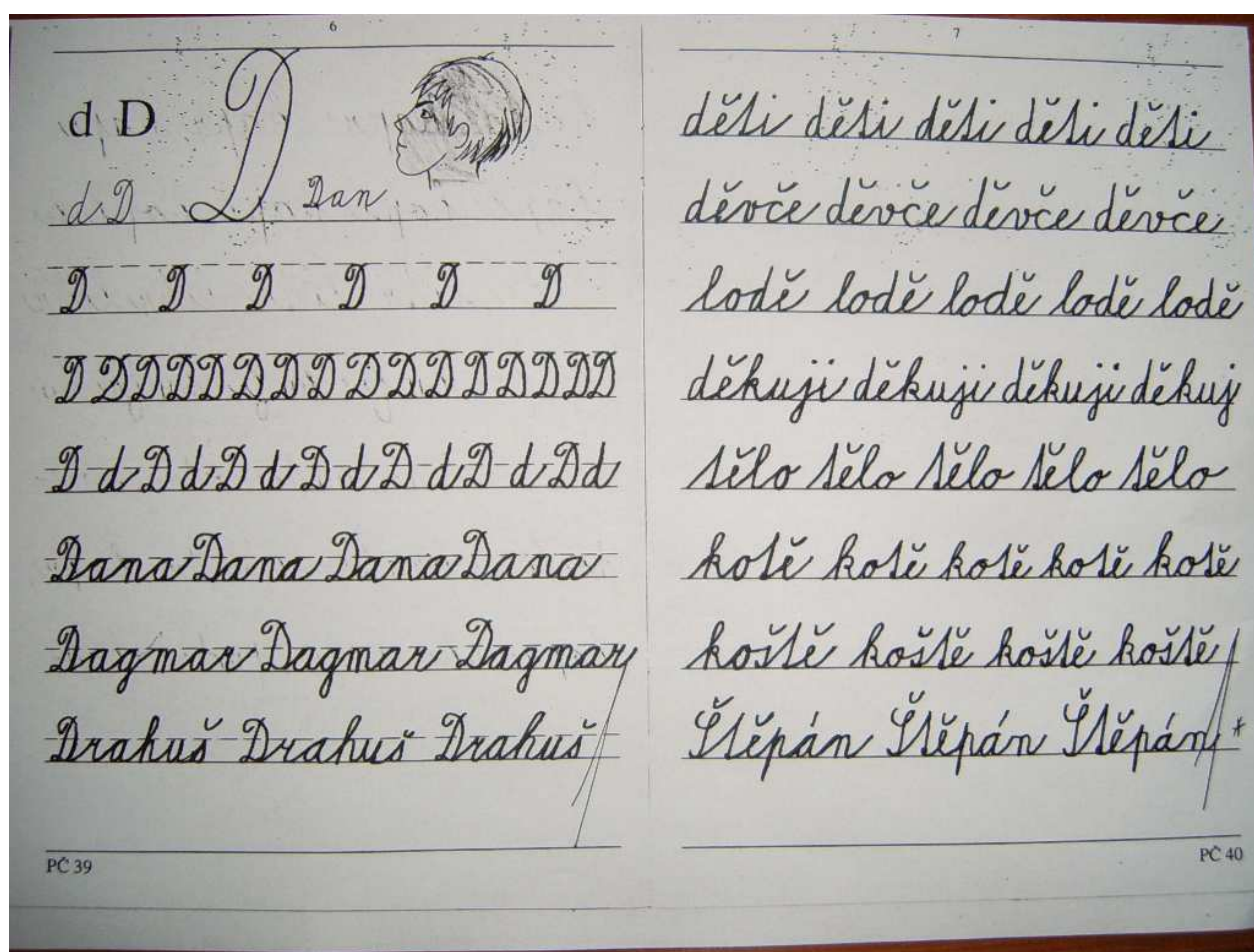 6
d D D
d D Dan
D D D D D D
D D D D D D D D D D D D D D D
D d D d D d D d D d D d D d
Dana Dana Dana Dana
Dagmar Dagmar Dagmar
Drahuš Drahuš Drahuš
PČ 39
7
děti děti děti děti děti
děvče děvče děvče děvče
lodě lodě lodě lodě lodě
děkuji děkuji děkuji děkuj
tělo tělo tělo tělo tělo
kotě kotě kotě kotě kotě
koště koště koště koště
Štěpán Štěpán Štěpán *
PČ 40